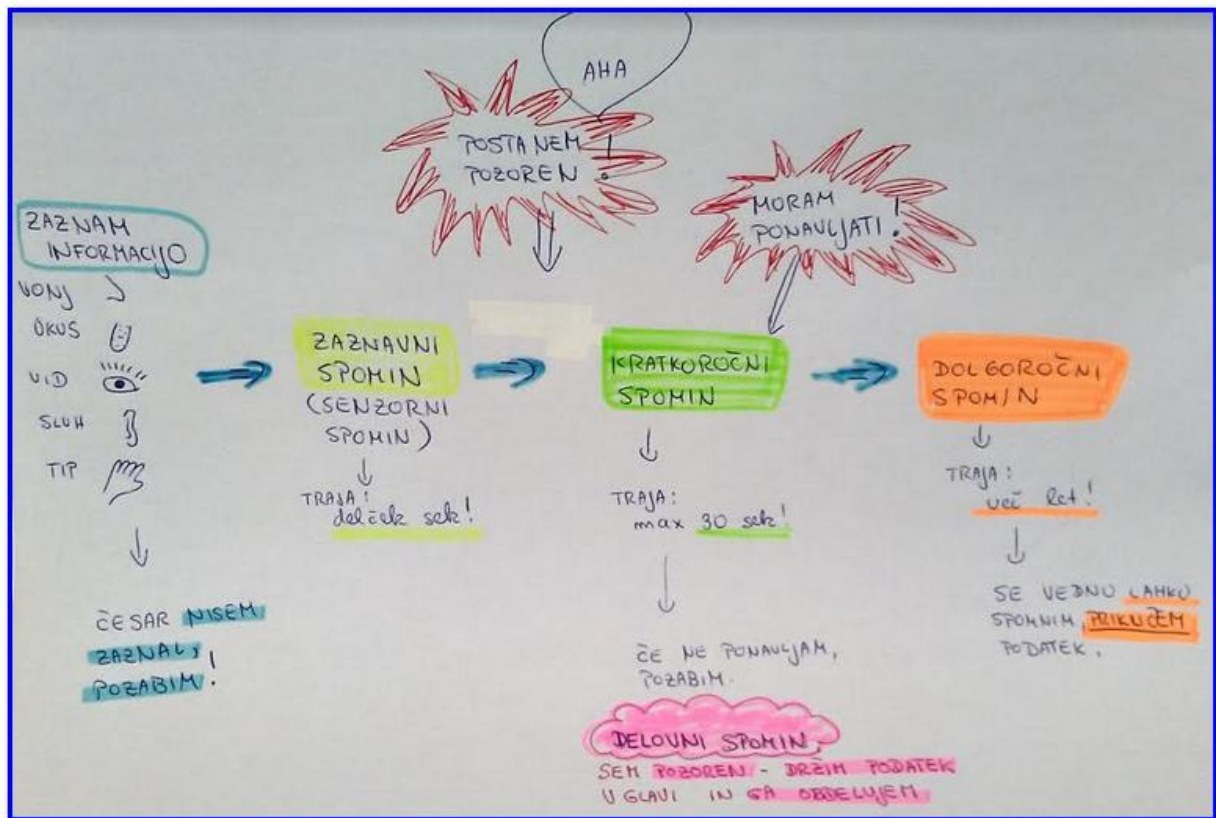 AHA
POSTANEM
POZOREN!
MORAM
PONAVLJATI!
ZAZNAM
INFORMACIJO
VONJ
OKUS
VID
SLUH
TIP
ČESAR NISEM
ZAZNAL,
POZABIM!
ZAZNAVNI
SPOMIN
(SENZORNI
SPOMIN)
TRAJA:
delček sek!
KRATKOROČNI
SPOMIN
TRAJA:
max 30 sek!
ČE NE PONAVLJAM,
POZABIM.
DELOVNI SPOMIN
SEM POZOREN - DRŽIM PODATEK
V GLAVI IN GA OBDELUJEM
DOLGOROČNI
SPOMIN
TRAJA:
več let!
SE VEDNO LAHKO
SPOMNIM, PRIKLIČEM
PODATEK.